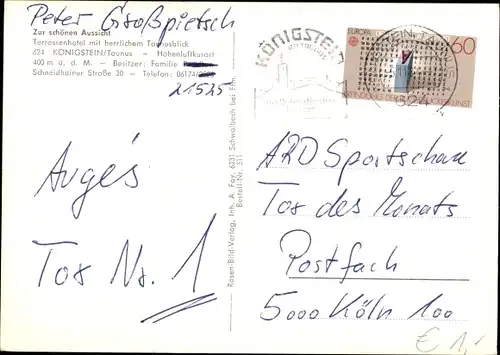 Peter Großpietsch
Zur schönen Aussicht
Terrassenhotel mit herrlichem Taunusblick
624 KÖNIGSTEIN/Taunus – Höhenluftkurort
400 m ü. d. M. – Besitzer: Familie
Schneidhainer Straße 30 – Telefon: 06174/
21525
Augés
Tor Nr. 1
Rosen-Bild-Verlag, Inh. A. Fay, 6231 Schwalbach bei Ffm.
Bestell-Nr. 511
KÖNIGSTEIN
IM TAUNUS
EUROPA
60
6240
ARD Sportschau
Tor des Monats
Postfach
5000 Köln 100
€ 1,-